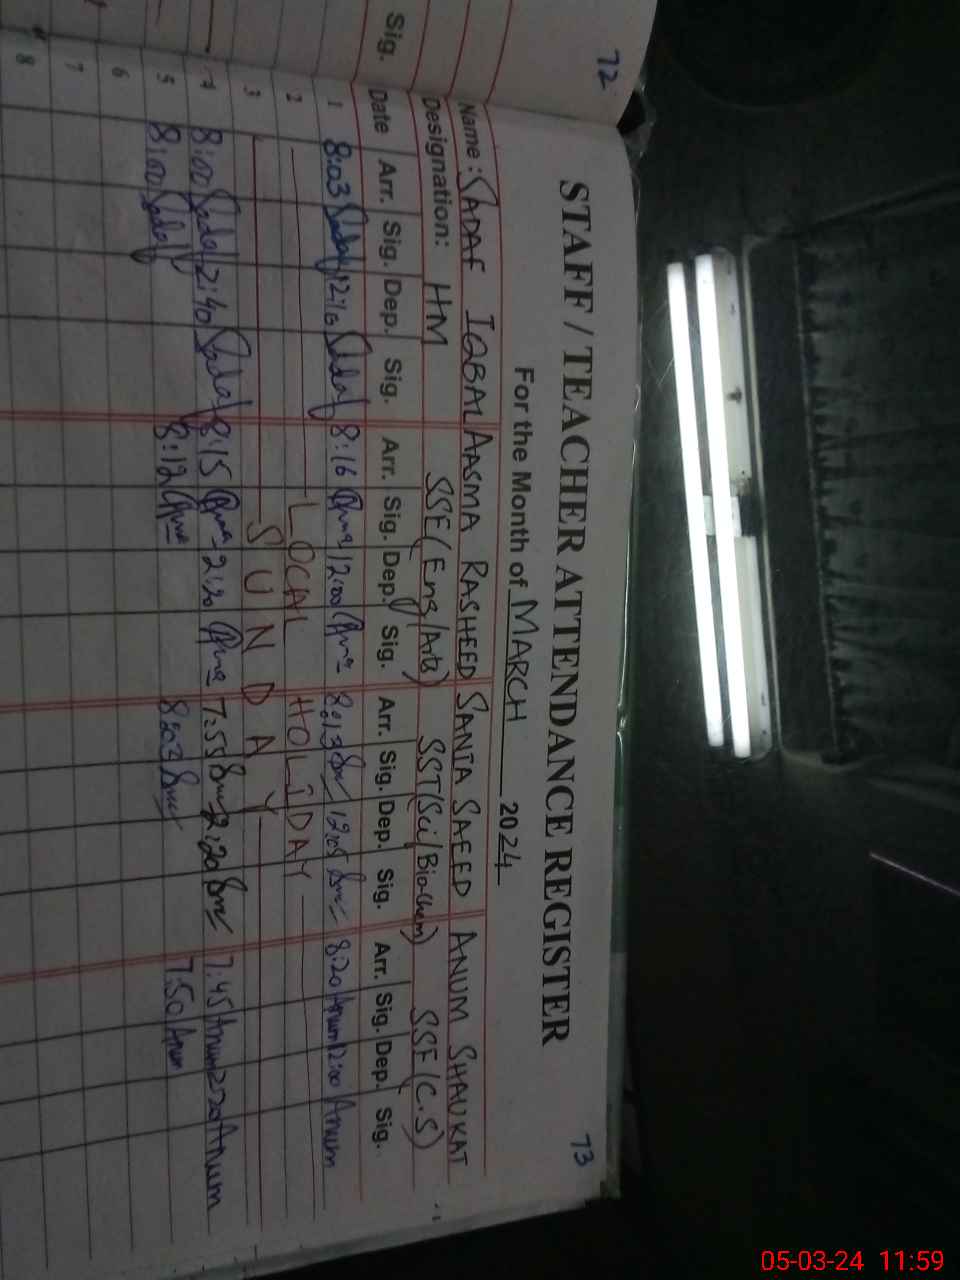 72
73
STAFF / TEACHER ATTENDANCE REGISTER
For the Month of MARCH 2024
Sig. Name: SADAF IQBAL AASMA RASHEED SANTA SAEED ANUM SHAUKAT
Designation: HM SSE(Eng/Arts) SST(Sci/Bio-Chem) SSE(C.S)
Date Arr. Sig. Dep. Sig. Arr. Sig. Dep. Sig. Arr. Sig. Dep. Sig. Arr. Sig. Dep. Sig.
1 8:03 Sadaf 12:10 Sadaf 8:16 12:00 8:13 12:05 8:20 Anum 12:00 Anum
2 LOCAL HOLIDAY
3 SUNDAY
4 8:00 Sadaf 2:40 Sadaf 8:15 2:20 7:55 2:20 7:45 Anum 2:20 Anum
5 8:00 Sadaf 8:12 8:03 7:50 Anum
6
7
8
05-03-24 11:59